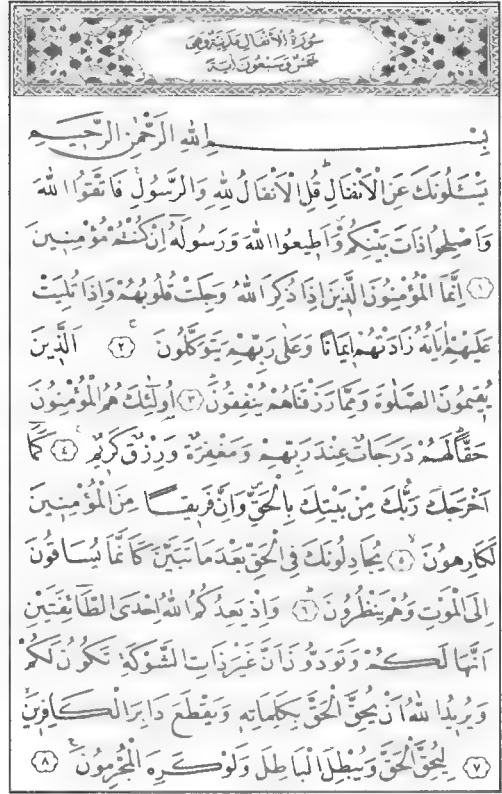 سُورَةُ الْاَنْفَالِ مَدَنِيَّةٌ وَهِيَ
خَمْسٌ وَسَبْعُونَ اٰيَةً
بِسْمِ اللهِ الرَّحْمٰنِ الرَّحِيمِ
يَسْـَٔلُونَكَ عَنِ الْاَنْفَالِۜ قُلِ الْاَنْفَالُ لِلّٰهِ وَالرَّسُولِۚ فَاتَّقُوا اللهَ
وَاَصْلِحُوا ذَاتَ بَيْنِكُمْۖ وَاَطِيعُوا اللهَ وَرَسُولَهُٓ اِنْ كُنْتُمْ مُؤْمِنِينَ
﴿١﴾ اِنَّمَا الْمُؤْمِنُونَ الَّذِينَ اِذَا ذُكِرَ اللهُ وَجِلَتْ قُلُوبُهُمْ وَاِذَا تُلِيَتْ
عَلَيْهِمْ اٰيَاتُهُ زَادَتْهُمْ اِيمَانًا وَعَلٰى رَبِّهِمْ يَتَوَكَّلُونَۚ ﴿٢﴾ اَلَّذِينَ
يُقِيمُونَ الصَّلٰوةَ وَمِمَّا رَزَقْنَاهُمْ يُنْفِقُونَۜ ﴿٣﴾ اُو۬لٰٓئِكَ هُمُ الْمُؤْمِنُونَ
حَقًّاۜ لَهُمْ دَرَجَاتٌ عِنْدَ رَبِّهِمْ وَمَغْفِرَةٌ وَرِزْقٌ كَرِيمٌۚ ﴿٤﴾ كَمَٓا
اَخْرَجَكَ رَبُّكَ مِنْ بَيْتِكَ بِالْحَقِّۖ وَاِنَّ فَرِيقًا مِنَ الْمُؤْمِنِينَ
لَكَارِهُونَۙ ﴿٥﴾ يُجَادِلُونَكَ فِي الْحَقِّ بَعْدَ مَا تَبَيَّنَ كَاَنَّمَا يُسَاقُونَ
اِلَى الْمَوْتِ وَهُمْ يَنْظُرُونَۜ ﴿٦﴾ وَاِذْ يَعِدُكُمُ اللهُ اِحْدَى الطَّٓائِفَتَيْنِ
اَنَّهَا لَكُمْ وَتَوَدُّونَ اَنَّ غَيْرَ ذَاتِ الشَّوْكَةِ تَكُونُ لَكُمْ
وَيُرِيدُ اللهُ اَنْ يُحِقَّ الْحَقَّ بِكَلِمَاتِهِ وَيَقْطَعَ دَابِرَ الْكَافِرِينَۙ
﴿٧﴾ لِيُحِقَّ الْحَقَّ وَيُبْطِلَ الْبَاطِلَ وَلَوْ كَرِهَ الْمُجْرِمُونَۚ ﴿٨﴾